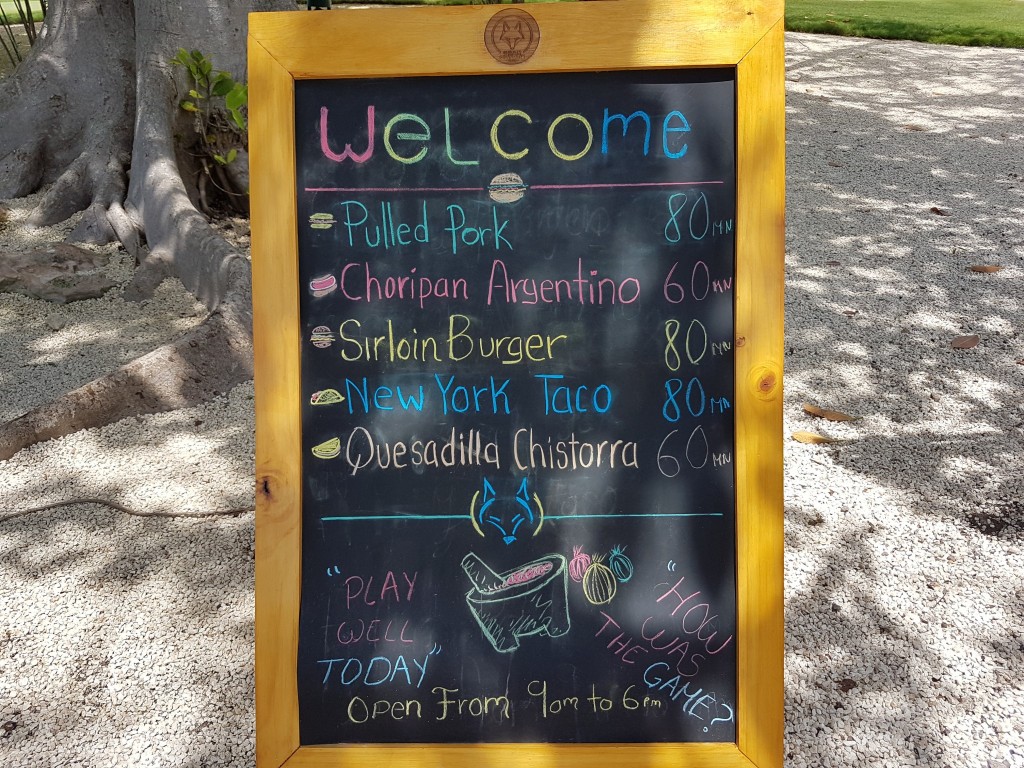 Welcome
Pulled Pork 80 MN
Choripan Argentino 60 MN
Sirloin Burger 80 MN
New York Taco 80 MN
Quesadilla Chistorra 60 MN
"PLAY
WELL
TODAY"
"HOW
WAS
THE
GAME?
Open From 9am to 6pm